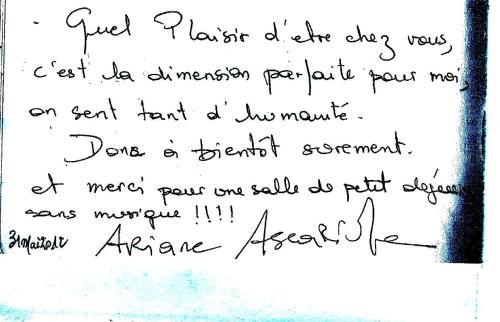 Quel Plaisir d'etre chez vous,
c'est la dimension parfaite pour moi,
on sent tant d'humanité.
Donc à bientôt surement.
et merci pour une salle de petit déjeuner
sans musique !!!!
Ariane Ascaride